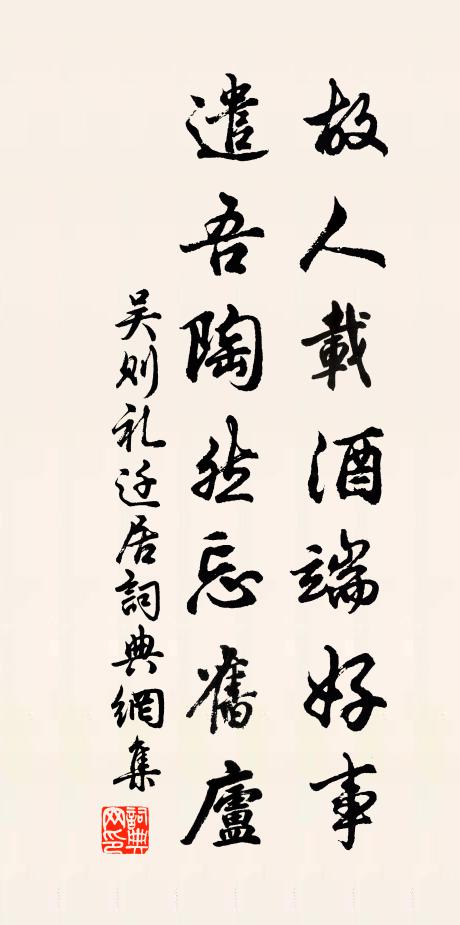 故人載酒端好事
遣吾陶然忘舊廬
吴则礼迁居詞典網集
詞典網印